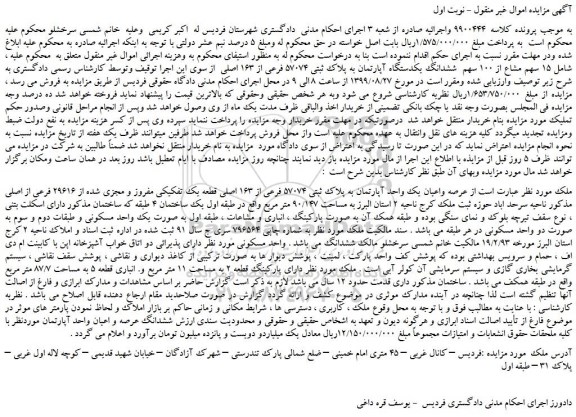 آگهی مزایده اموال غیر منقول - نوبت اول
به موجب پرونده کلاسه ۹۹۰۰۴۴۴ واجرائیه صادره از شعبه ۳ اجرای احکام مدنی دادگستری شهرستان فردیس له اکبر کریمی وعلیه خانم شمسی سرخشلو محکوم علیه
محکوم است به پرداخت مبلغ ۱/۵۷۵/۰۰۰/۰۰۰ریال بابت اصل خواسته در حق محکوم له ومبلغ ۵ درصد نیم عشر دولتی با توجه به اینکه اجرائیه صادره به محکوم علیه ابلاغ
شده ودر مهلت مقرر نسبت به اجرای حکم اقدام ننموده است بنا به درخواست محکوم له به منظور استیفای محکوم به وهزینه اجرائی اموال غیر منقول متعلق به محکوم علیه ،
شامل ۱۵ سهم مشاع از ۱۰۰ سهم ششدانگ یکدستگاه آپارتمان به پلاک ثبتی ۵۷۰۷۴ فرعی از ۱۶۳ اصلی از سوی این اجرا توقیف وتوسط کارشناس رسمی دادگستری به
شرح زیر توصیف وارزیابی شده ومقرر است در مورخ ۱۳۹۹/۰۸/۲۷ از ساعت ۸/۳۰ الی ۹ در محل اجرای احکام مدنی دادگاه حقوقی فردیس از طریق مزایده به فروش می رسد ،
مزایده از مبلغ ۱/۶۵۳/۷۵۰/۰۰۰ریال نظریه کارشناسی شروع می شود وبه هر شخص حقیقی وحقوقی که بالاترین قیمت را پیشنهاد نماید فروخته خواهد شد ده درصد وجه
مزایده فی المجلس بصورت وجه نقد یا چک بانکی تضمینی از خریدار اخذ والباقی ظرف مدت یک ماه از وی وصول خواهد شد وپس از انجام مراحل قانونی وصدور حکم
تملیک مورد مزایده بنام خریدار منتقل خواهد شد درصورتیکه در مهلت مقرر خریدار وجه مزایده را پرداخت ننماید سپرده وی پس از کسر هزینه مزایده به نفع دولت ضبط
ومزایده تجدید میگردد کلیه هزینه های نقل وانتقال به عهده محکوم علیه است واز محل فروش پرداخت خواهد شد طرفین میتوانند ظرف یک هفته از تاریخ مزایده نسبت به
نحوه انجام مزایده اعتراض نماید که در این صورت تا رسیدگی به اعتراض از سوی دادگاه مورد مزایده به نام خریدار منتقل نخواهد شد ضمناً طالبین به شرکت در مزایده می
توانند ظرف ۵ روز قبل از مزایده با اطلاع این اجرا از مال مورد مزایده باز دید نمایند چنانچه روز مزایده مصادف با ایام تعطیل باشد روز بعد در همان ساعت ومکان برگزار
خواهد شد مال مورد مزایده وبهای آن طبق نظر کارشناس بدین شرح است :
ملک مورد نظر عبارت است از عرصه واعیان یک واحد آپارتمان به پلاک ثبتی ۵۷۰۷۴ فرعی از ۱۶۳ اصلی قطعه یک تفکیکی مفروز و مجزی شده از ۲۹۶۱۶ فرعی از اصلی
مذکور ناحیه سرحد اباد حوزه ثبت ملک کرج ناحیه ۲ استان البرز به مساحت ۹۰/۱۴۷ متر مربع واقع در طبقه اول یک ساختمان ۴ طبقه که ساختمان مذکور دارای اسکلت بتنی
، نوع سقف تیرچه بلوک و نمای سنگی بوده و طبقه همکف آن به صورت پارکینگ ، انباری و مشاعات ، طبقه اول به صورت یک واحد مسکونی و طبقات دوم و سوم به
صورت دو واحد مسکونی در هر طبقه می باشد . سند مالکیت ملک مورد نظر به شماره چاپی ۷۹۶۵۶۴ سری ج سال ۹۱ ثبت شده در اداره ثبت اسناد و املاک ناحیه ۲ کرج
استان البرز مورخه ۱۹/۲/۹۳ مالکیت خانم شمسی سرخشلو مالک ششدانگ می باشد . واحد مسکونی مورد نظر دارای پذیرائی دو اتاق خواب آشپزخانه اپن با کابینت ام دی
اف ، حمام و سرویس بهداشتی بوده که پوشش کف واحد پارکت ، لمینت ، پوشش دیوار ها به صورت ترکیبی از کاغذ دیواری و نقاشی ، پوشش سقف نقاشی ، سیستم
گرمایشی بخاری گازی و سیستم سرمایشی آن کولر آبی است . ملک مورد نظر دارای پارکینگ قطعه ۲ به مساحت ۱۱ متر مربع و. انباری قطعه ۵ به مساحت ۸۷/۷ متر مربع
واقع در طبقه همکف می باشد . ساختمان مذکور دارای قدمت حدود ۱۲ سال می باشد لازم به ذکر است گزارش حاضر بر اساس مشاهدات و مدارک ابرازی و فارغ از اصالت
آنها تنظیم گشته است لذا چنانچه در آینده مدارک موثری در موضوع کشف و ارائه گردد گزارش در صورت صلاحدید مقام ارجاع دهنده قابل اصلاح می باشد . نظریه
کارشناسی : با عنایت به مطالب فوق و با توجه به محل وقوع ملک ، کاربری ، دسترسی ها ، شرایط مکانی و زمانی حاکم بر بازار املاک و لحاظ نمودن پارمتر های موثر در
موضوع فارغ از تأیید اصالت اسناد ابرازی و هرگونه دیون و تعهد به اشخاص حقیقی و حقوقی و محدودیت سندی ارزش ششدانگ عرصه و اعیان واحد آپارتمان موردنظر با
کلیه ملحقات حقوق انشعابات و امتیازات مجموعاً مبلغ ۱۲/۱۵۰/۰۰۰/۰۰۰ریال معادل یک میلیاردو دویست و پانزده میلیون تومان برآورد و اعلام می گردد .
آدرس ملک مورد مزایده :فردیس – کانال غربی – ۴۵ متری امام خمینی – ضلع شمالی پارک تندرستی – شهرک آزادگان – خیابان شهید قدیمی – کوچه لاله اول غربی –
پلاک ۳۱ – طبقه اول
دادورز اجرای احکام مدنی دادگستری فردیس - یوسف قره داغی